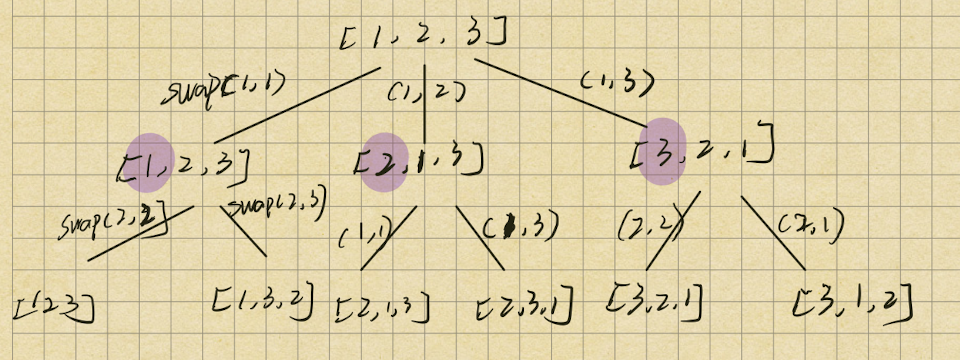 [1, 2, 3]
swap(1,1)
(1, 2)
(1,3)
[1, 2, 3]
[2, 1, 3]
[3, 2, 1]
swap(2,2)
swap(2,3)
(1,1)
(1,3)
(2,2)
(2,1)
[1 2 3]
[1,3,2]
[2,1,3]
[2,3,1]
[3,2,1]
[3,1,2]